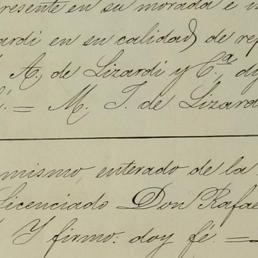 resente en su morada e i
ardi en su calidad de rep
A. de Lizardi y C.ª dy
= M. J. de Lizard
mismo enterado de la
Licenciado Don Rafae
Y firmo. doy fé.=